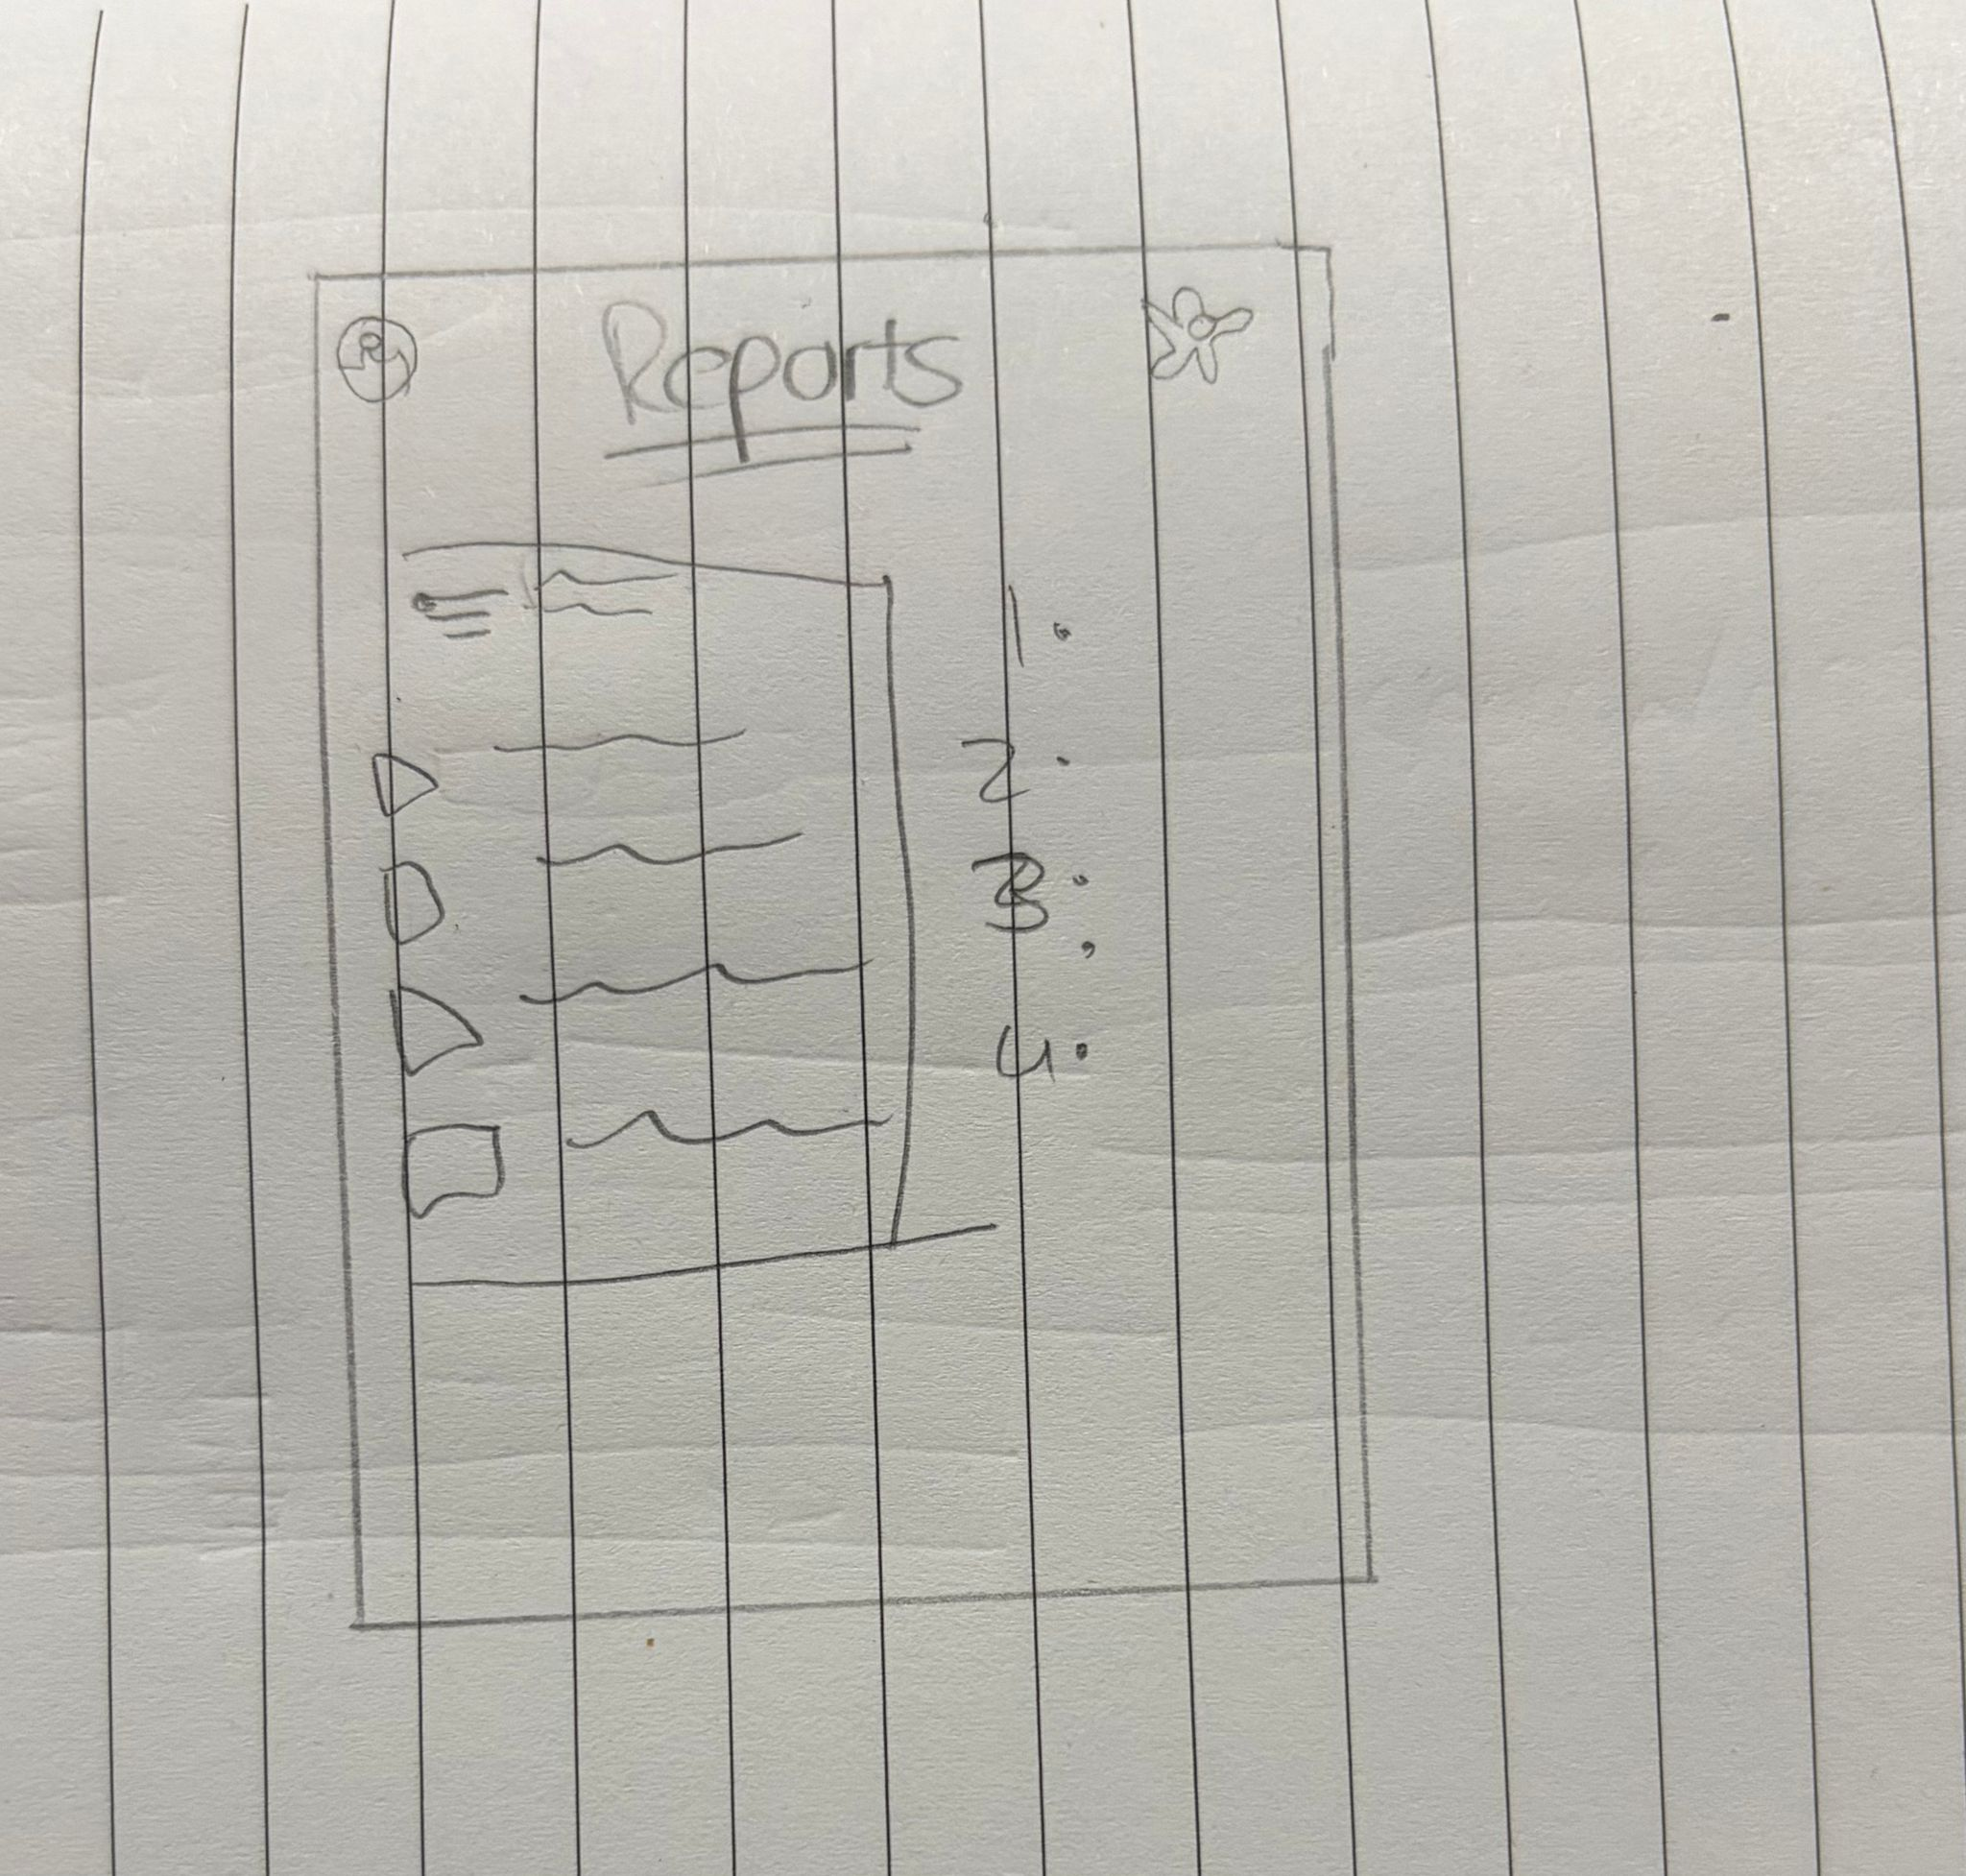 Reports
1.
2.
3.
4.